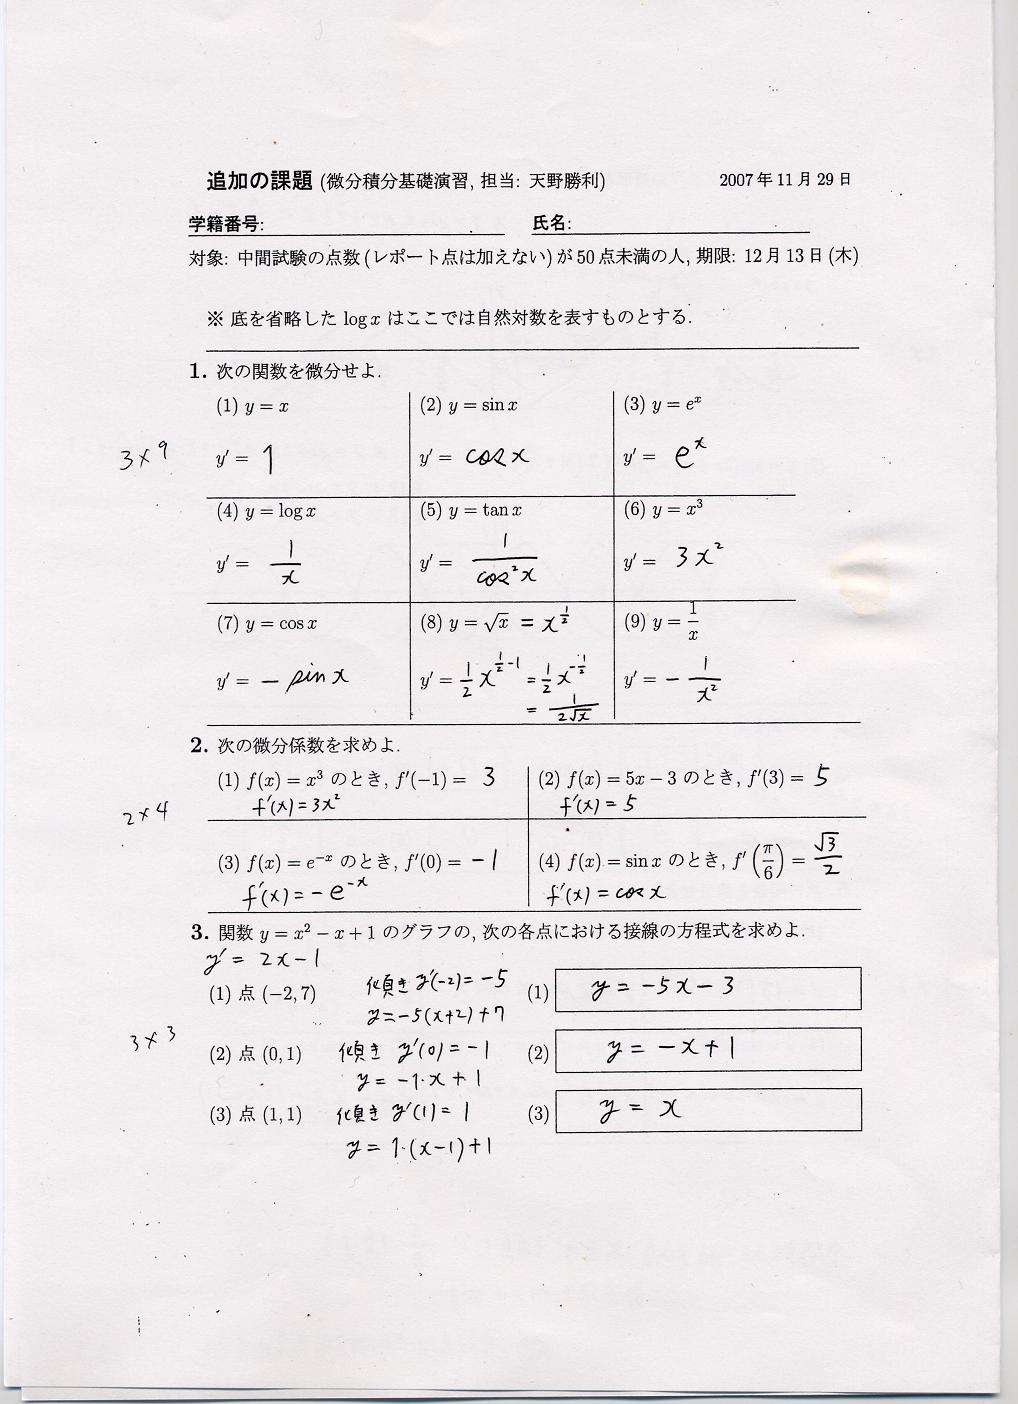 追加の課題 (微分積分基礎演習, 担当: 天野勝利) 2007年11月29日
学籍番号: 氏名:
対象: 中間試験の点数(レポート点は加えない)が50点未満の人, 期限: 12月13日(木)
※ 底を省略した log x はここでは自然対数を表すものとする.
1. 次の関数を微分せよ.
(1) y = x (2) y = sin x (3) y = e^x
3×9
y′ = 1 y′ = cos x y′ = e^x
(4) y = log x (5) y = tan x (6) y = x³
y′ = 1/x y′ = 1/cos²x y′ = 3x²
(7) y = cos x (8) y = √x = x^(1/2) (9) y = 1/x
y′ = − sin x y′ = 1/2 x^(1/2 −1) = 1/2 x^(−1/2) y′ = − 1/x²
= 1/(2√x)
2. 次の微分係数を求めよ.
(1) f(x) = x³ のとき, f′(−1) = 3 (2) f(x) = 5x − 3 のとき, f′(3) = 5
f′(x) = 3x² f′(x) = 5
2×4
(3) f(x) = e^(−x) のとき, f′(0) = −1 (4) f(x) = sin x のとき, f′(π/6) = √3/2
f′(x) = − e^(−x) f′(x) = cos x
3. 関数 y = x² − x + 1 のグラフの, 次の各点における接線の方程式を求めよ.
y′ = 2x − 1
(1) 点 (−2, 7) 傾き y′(−2) = −5 (1) y = −5x − 3
y = −5(x+2)+7
3×3
(2) 点 (0, 1) 傾き y′(0) = −1 (2) y = −x + 1
y = −1·x + 1
(3) 点 (1, 1) 傾き y′(1) = 1 (3) y = x
y = 1·(x−1)+1